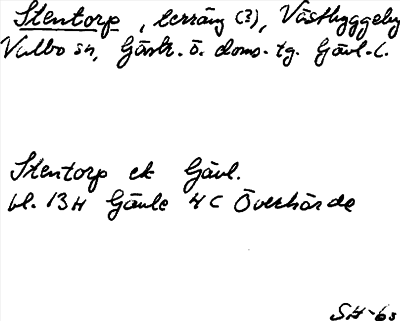 Stentorp, terräng (?), Västbyggeby
Valbo sn, Gästr. ö. doms. tg. Gävl. l.
Stentorp ek Gävl.
bl. 13H Gävle 4C Överhärde
SH-63